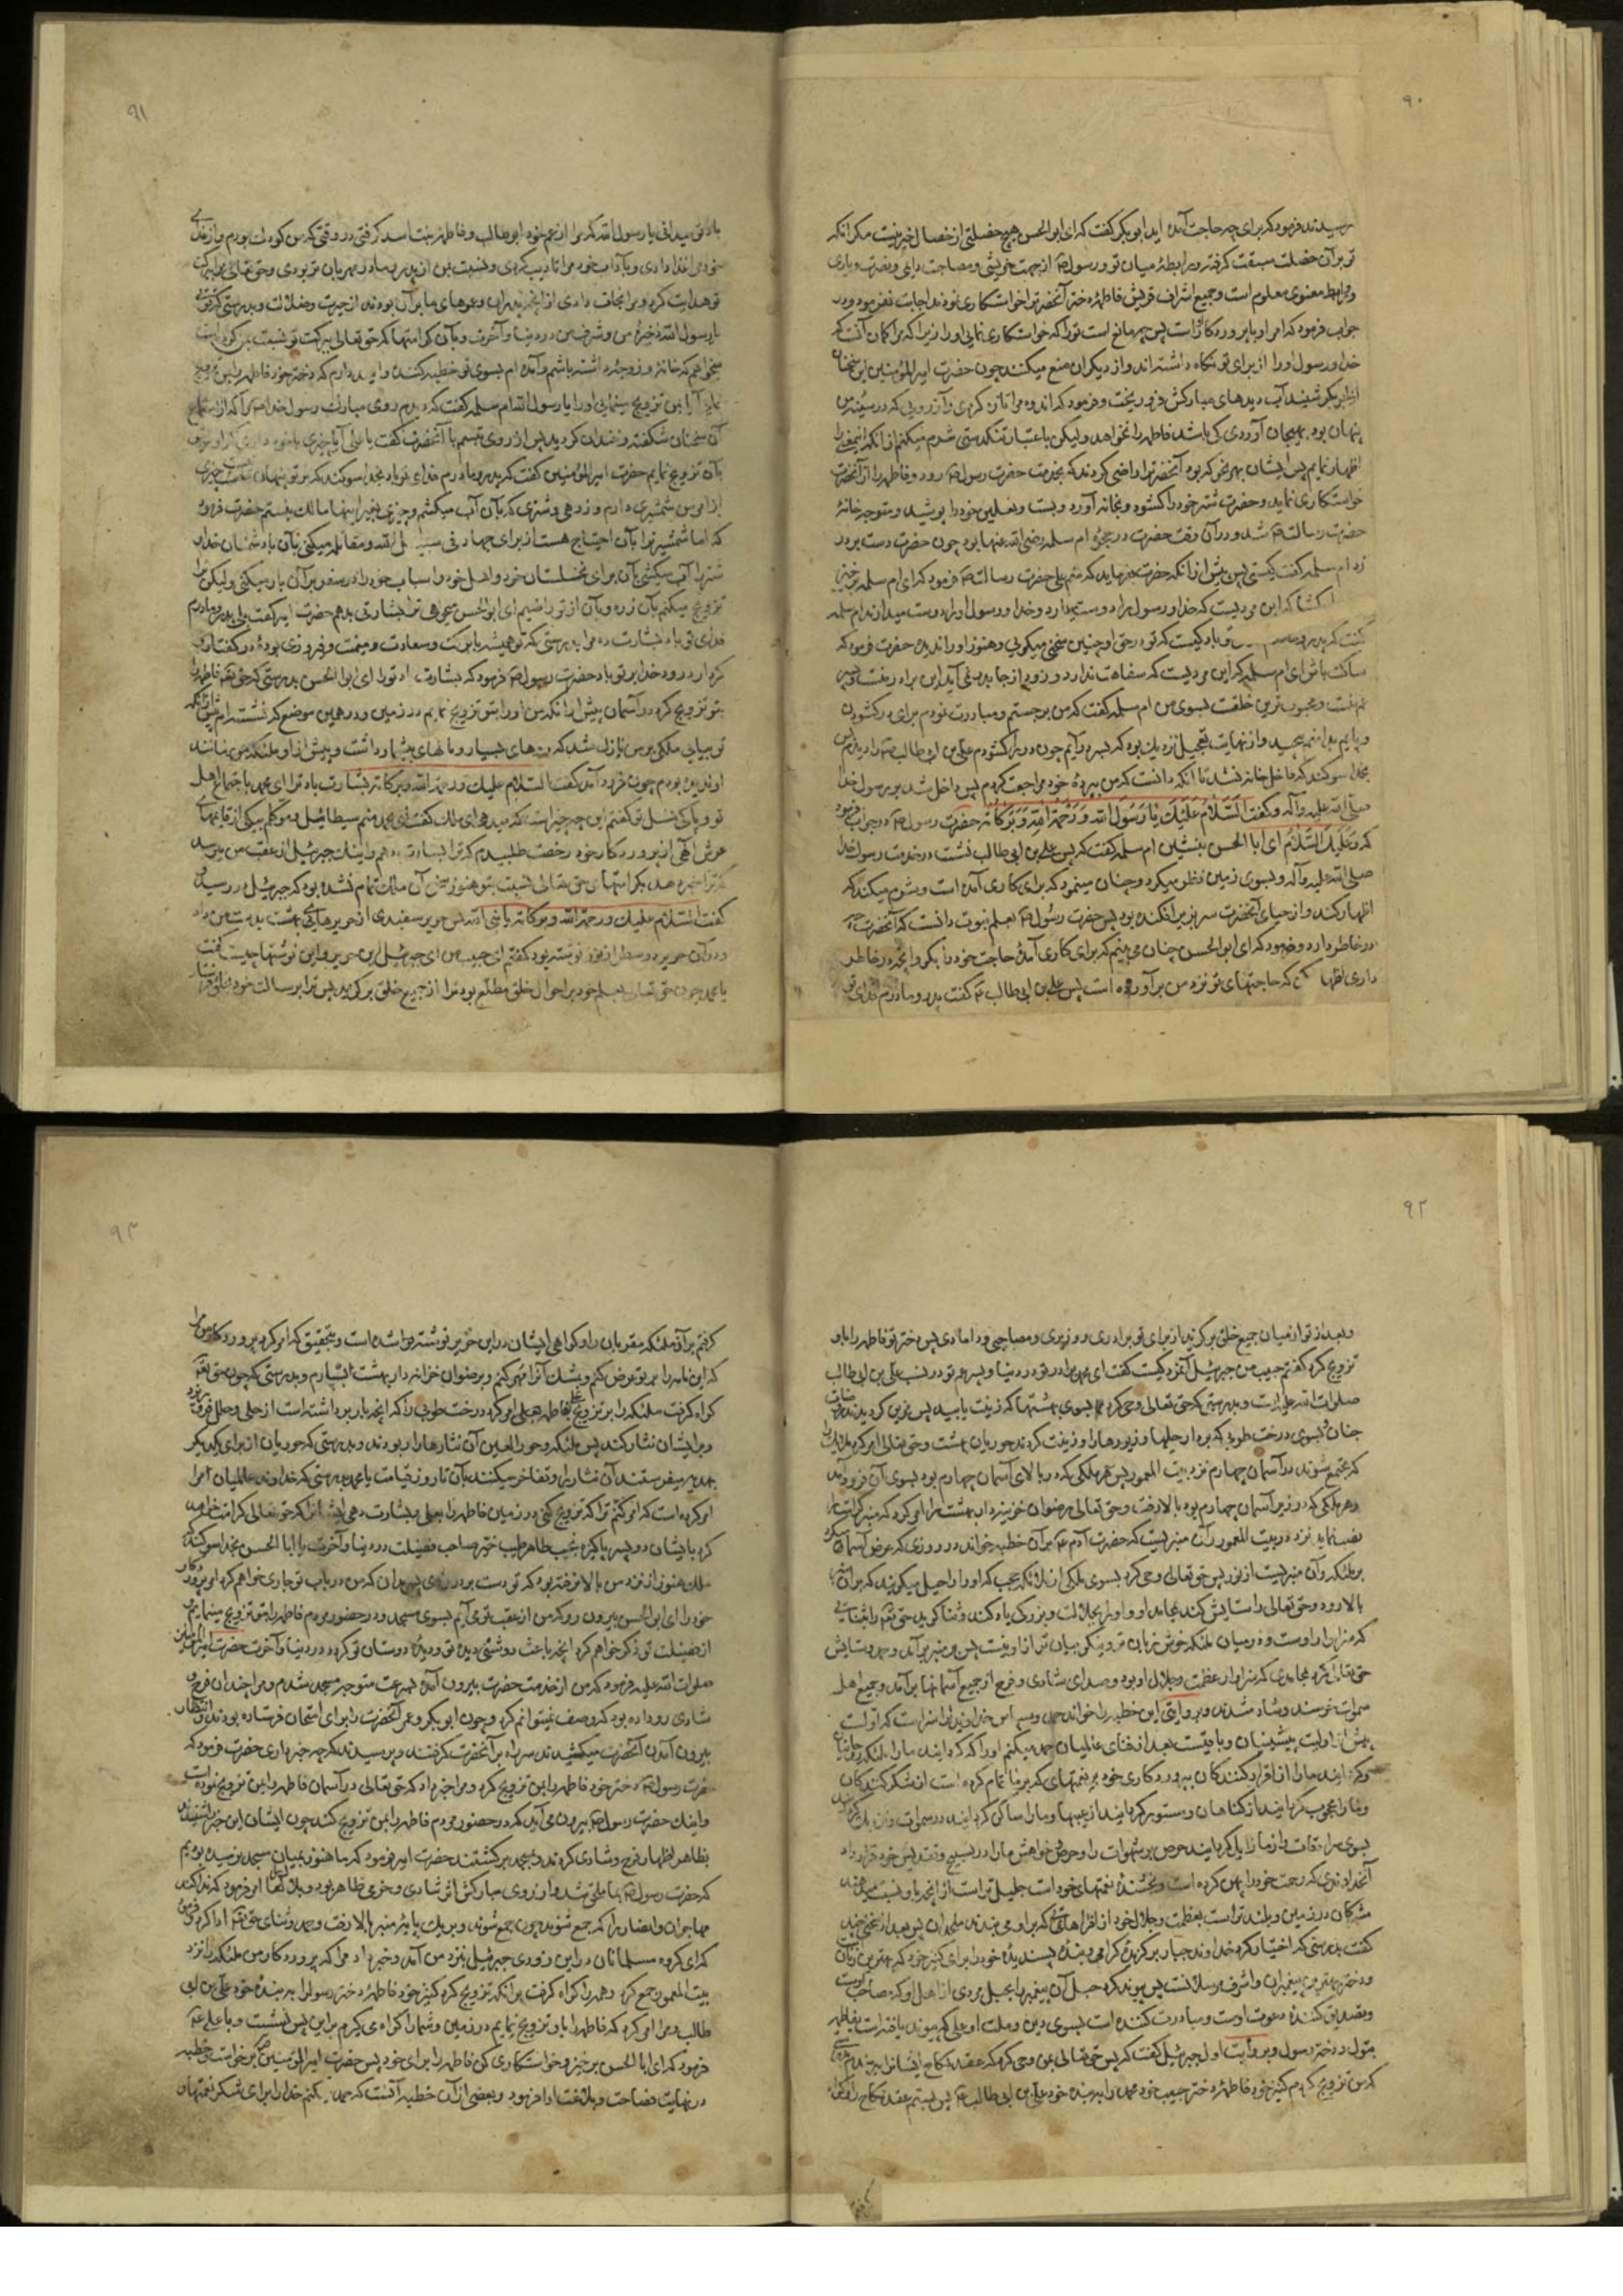 ۹۰
پرسیدند فرمود که برای چه حاجت آمده اید ابوبکر گفت که ای ابوالحسن هیچ خصلتی از خصال خیر نیست مگر آنکه
تو بر آن خصلت سبقت گرفته و رابطهٔ میان تو و رسول از جهت خویشی و مصاحبت دایمی و نصرت و یاری
و روابط معنوی معلوم است و جمیع اشراف قریش فاطمه دختر آنحضرت را خواستکاری نمودند اجابت نفرمود و در
جواب فرمود که امر او با پروردکار است پس چه مانع است تو را که خواستکاری نمایی او را زیرا که مرا کمان آنست که
خدا و رسول او را از برای تو نکاه داشته اند و از دیکران منع میکنند چون حضرت امیرالمؤمنین این سخنان
از ابوبکر شنید آب دیدهای مبارکش فرو ریخت و فرمود که اندوه مرا تازه کردی و آرزویی که در سینهٔ من
پنهان بود بهیجان آوردی کی باشد فاطمه را نخواهد ولیکن باعتبار تنکدستی شرم میکنم از آنکه این معنی را
اظهار نمایم پس ایشان بهر نحو که بود آنحضرت را راضی کردند که بخدمت حضرت رسول رود و فاطمه را از آنحضرت
خواستکاری نماید و حضرت شتر خود را کشود و بخانه آورد و بست و نعلین خود را پوشید و متوجه خانهٔ
حضرت رسالت شد و در آن وقت حضرت در حجرهٔ ام سلمه رضی الله عنها بود چون حضرت دست بر در
زد ام سلمه گفت کیستی پس پیش از آنکه حضرت بفرماید که منم علی حضرت رسالت فرمود که ای ام سلمه برخیز
که این مردیست که خدا و رسول را دوست میدارد و خدا و رسول او را دوست میدارند ام سلمه
گفت که پدر و مادرم کیست که تو در حق او چنین سخنی میکویی و هنوز او را ندیده حضرت فرمود که
ساکت باش ای ام سلمه که این مردیست که سفاهت ندارد و زود از جا بدر نمی آید این برادر منست و پسر
عم منست و محبوب ترین خلقست بسوی من ام سلمه گفت که من برجستم و مبادرت نمودم برای در کشودن
و پایم بدامنم پیچید و از نهایت تعجیل نزدیک بود که بسر درآیم چون در را کشودم علی بن ابی طالب را دیدم پس
بخدا سوکند که داخل خانه نشد تا آنکه دانست که من بپردهٔ خود مراجعت کردم پس داخل شد بر رسول خدا
صلی الله علیه وآله و گفت السَّلامُ عَلَیْکَ یا رَسُولَ الله وَ رَحْمَةُ اللهِ وَ بَرَکاتُه حضرت رسول در جواب فرمود
که وَعَلَیْکَ السَّلامُ ای ابا الحسن بنشین ام سلمه گفت که پس علی بن ابی طالب نشست در خدمت رسول خدا
صلی الله علیه وآله و بسوی زمین نظر میکرد و چنان مینمود که برای کاری آمده است و شرم میکند که
اظهار کند و از حیای آنحضرت سر بزیر افکنده بود پس حضرت رسول بعلم نبوت دانست که آنحضرت چه
در خاطر دارد و فرمود که ای ابوالحسن چنان می بینم که برای کاری آمدهٔ حاجت خود را بکو و آنچه در خاطر
داری اظهار کن که حاجتهای تو نزد من برآورده است پس علی بن ابی طالب گفت پدر و مادرم فدای تو
۹۱
باد تو میدانی یا رسول الله که مرا از عم خود ابوطالب و فاطمه بنت اسد کرفتی در وقتی که من کودک بودم و از غذای
خود مرا غذا دادی و بآداب خود مرا تأدیب کردی و نسبت بمن از پدر و مادر مهربان تر بودی و حق تعالی مرا ببرکت
تو هدایت کرد و مرا نجات دادی از آنچه پدران و عموهای ما بر آن بودند از حیرت و ضلالت و بدرستی که تویی
یا رسول الله ذخیرهٔ من و شرف من در دنیا و آخرت و با آن کرامتها که حق تعالی ببرکت تو نسبت بمن کرده است
میخواهم که خانهٔ و زوجهٔ داشته باشم و آمده ام بسوی تو خطبه کننده و امید دارم که دختر خود فاطمه را بمن تزویج
نمایی آیا بمن تزویج مینمایی او را یا رسول الله ام سلمه گفت که دیدم روی مبارک رسول خدا را که از استماع
آن سخنان شکفته و خندان کردید پس از روی تبسم با آنحضرت گفت یا علی آیا چیزی با خود داری که او را بتو
بآن تزویج نمایم حضرت امیرالمؤمنین گفت که پدر و مادرم فدای تو باد بخدا سوکند که بر تو پنهان نیست چیزی
از امر من شمشیری دارم و زرهی و شتری که بآن آب میکشم و چیزی بغیر اینها مالک نیستم حضرت فرمود
که اما شمشیر ترا بآن احتیاج هست از برای جهاد فی سبیل الله و مقاتله میکنی بآن با دشمنان خدا و
شتر را آب میکشی بآن برای نخلستان خود و اهل خود و اسباب خود را در سفر بر آن بار میکنی ولیکن ترا
تزویج میکنم بآن زره و بآن از تو راضیم ای ابوالحسن میخواهی ترا بشارتی بدهم حضرت امیر گفت بلی پدر و مادرم
فدای تو باد بشارت ده مرا بدرستی که تو همیشه با برکت و سعادت و میمنت و فیروزی بودهٔ در گفتار و
کردار درود خدا بر تو باد حضرت رسول فرمود که بشارت باد تو را ای ابوالحسن بدرستی که حق تعالی فاطمه را
بتو تزویج کرد در آسمان پیش از آنکه من او را بتو تزویج نمایم در زمین و در همین موضع که نشسته ام پیش از آنکه
تو بیایی ملکی بر من نازل شد که روهای بسیار و بالهای بیشمار داشت و پیش از او ملکی مانند
او ندیده بودم چون فرود آمد گفت السلام علیک و رحمة الله و برکاته بشارت باد ترا ای محمد باجتماع اهل
تو و پاکی نسل تو گفتم این چه چیز است که میدهی ای ملک گفت ای محمد منم سیطائیل و موکلم بیکی از قایمهای
عرش الهی از پروردکار خود رخصت طلبیدم که ترا بشارت دهم و اینک جبرئیل از عقب من میرسد
که ترا خبر دهد بکرامتهای حق تعالی نسبت بتو هنوز سخن آن ملک تمام نشده بود که جبرئیل در رسید و
گفت السلام علیک و رحمة الله و برکاته یا نبی الله پس حریر سفیدی از حریرهای بهشت بدست من داد
و در آن حریر دو سطر از نور نوشته بود گفتم ای حبیب من ای جبرئیل این حریر و این نوشتها چیست گفت
یا محمد چون حق تعالی بعلم خود بر احوال خلق مطلع بود ترا از جمیع خلق برکزید پس ترا برسالت خود
۹۲
و بعد از تو از میان جمیع خلق برکزید از برای تو برادری و وزیری و مصاحبی و دامادی پس دختر تو فاطمه را باو
تزویج کرد گفتم حبیب من جبرئیل آنمرد کیست گفت ای محمد برادر تو در دنیا و پسر عم تو در نسب علی بن ابی طالب
صلوات الله علیه است و بدرستی که حق تعالی وحی کرد بسوی بهشتها که زینت یابید پس مزین کردیدند
جنان و بسوی درخت طوبی که بردار حلیها و زیورها را و زینت کردند حوریان بهشت و حق تعالی امر کرد ملائکه را
که مجتمع شوند در آسمان چهارم نزد بیت المعمور پس هر ملکی که در بالای آسمان چهارم بود بسوی آن فرود آمد
و هر ملکی که در زیر آسمان چهارم بود بالا رفت و حق تعالی رضوان خزینه دار بهشت را امر کرد که منبر کرامت را
نصب نماید نزد در بیت المعمور و آن منبریست که حضرت آدم بر آن خطبه خواند در روزی که عرض اسماء کرد
بر ملائکه و آن منبریست از نور پس حق تعالی وحی کرد بسوی ملکی از ملائکه حجب که او را راحیل میکویند که بر آن منبر
بالا رود و حق تعالی را ستایش کند بمحامد او و او را بجلالت و بزرکی یاد کند و ثنا کوید حق تعالی را بثنایی
که سزاوار اوست و در میان ملائکه خوش زبان تر و نیکو بیان تر از او نیست پس بر منبر برآمد و حمد و ستایش
حق تعالی کرد بمحامدی که سزاوار عظمت و جلال او بود و صدای شادی و فرح از جمیع آسمانها برآمد و جمیع اهل
سموات خرسند و شاد شدند و بروایتی این خطبه را خواند حمد و سپاس خداوندی را سزاست که او است
پیش از اولیت پیشینیان و باقیست بعد از فنای عالمیان حمد میکنم او را که کردانید ما را ملائکه روحانیان
و کردانید ما را از اقرار کنندکان بپروردکاری خود بر نعمتهای که بر ما تمام کرده است از شکر کنندکان
و ما را محجوب کردانید از کناهان و مستور کردانید از عیبها و ما را ساکن کردانید در سموات
بسوی سرادقات و از ما زایل کردانید حرص بر شهوات را و حرص و خواهش ما را در تسبیح و تقدیس خود قرار داد
آنخداوندی که رحمت خود را پهن کرده است و بخشندهٔ نعمتهای خود است جلیل تر است از آنچه باو نسبت میدهند
مشرکان در زمین و بلندتر است بعظمت و جلال خود از افتراهای که بر او می بندند ملحدان پس بعد از سخنی چند
گفت بدرستی که اختیار کرد خداوند جبار برکزیدهٔ کرامی و بندهٔ پسندیدهٔ خود را برای کنیز خود که بهترین زنان
و دختر بهترین پیغمبران و اشرف مرسلانست پس پیوند کرد حبل آن پیغمبر را بحبل مردی از اهل او که مصاحب اوست
و تصدیق کنندهٔ دعوت اوست و مبادرت کننده است بسوی دین و ملت او علی که پیوند یافته است بفاطمه
بتول دختر رسول و بروایت اول جبرئیل گفت که پس حق تعالی بمن وحی کرد که عقد نکاح ایشانرا ببند
که من تزویج کردم کنیز خود فاطمه دختر حبیب خود محمد را به بنده خود علی بن ابی طالب پس بستم عقد نکاح را و کواه
۹۳
کرفتم بر آن ملائکه مقربان را و کواهی ایشان در این حریر نوشته شده است و بتحقیق که امر کرد پروردکار من مرا
که این نامه را بر تو عرض کنم و بمشک آنرا مهر کنم و برضوان خزانه دار بهشت بسپارم و بدرستی که چون حق تعالی
کواه کرفت ملائکه را بر تزویج فاطمه بعلی امر کرد درخت طوبی را که آنچه بار برداشته است از حلی و حلل فرو ریزد
و بر ایشان نثار کند پس ملائکه و حورالعین آن نثارها را ربودند و بدرستی که حوریان از برای یکدیکر
بهدیه میفرستند آن نثار را و تفاخر میکنند بآن تا روز قیامت یا محمد بدرستی که خداوند عالمیان مرا
امر کرده است که امر کنم ترا که تزویج کنی در زمین فاطمه را بعلی و بشارت دهی ایشانرا که حق تعالی کرامت خواهد
کرد بایشان دو پسر پاکیزه نجیب طاهر طیب خیر صاحب فضیلت در دنیا و آخرت یا ابا الحسن بخدا سوکند که
ملک هنوز از نزد من بالا نرفته بود که تو دست بر در زدی پس بدان که من در باب تو جاری خواهم کرد امر پروردکار
خود را ای ابوالحسن بیرون رو که من از عقب تو می آیم بسوی مسجد و در حضور مردم فاطمه را بتو تزویج مینمایم
از فضیلت تو ذکر خواهم کرد آنچه باعث روشنی دیدهٔ تو و دیدهٔ دوستان تو کردد در دنیا و آخرت حضرت امیرالمؤمنین
صلوات الله علیه فرمود که من از خدمت حضرت بیرون آمدم بسرعت متوجه مسجد شدم و مرا چندان فرح و
شادی رو داده بود که وصف نمیتوانم کرد و چون ابوبکر و عمر آنحضرت را برای امتحان فرستاده بودند و انتظار
بیرون آمدن آنحضرت میکشیدند سر راه بر آنحضرت کرفتند و پرسیدند که چه خبر داری حضرت فرمود که
حضرت رسول دختر خود فاطمه را بمن تزویج کرد و مرا خبر داد که حق تعالی در آسمان فاطمه را بمن تزویج نموده است
و اینک حضرت رسول بیرون می آید که در حضور مردم فاطمه را بمن تزویج کند چون ایشان این خبر شنیدند
بظاهر اظهار فرح و شادی کردند و بمسجد برکشتند حضرت امیر فرمود که ما هنوز بمیان مسجد نرسیده بودیم
که حضرت رسول بما ملحق شد و از روی مبارکش اثر شادی و خرمی ظاهر بود و بلال را امر فرمود که ندا کند
مهاجران و انصار را که جمع شوند چون جمع شوند و بر یک پایهٔ منبر بالا رفت و حمد و ثنای حق تعالی ادا کرد و فرمود
که ای کروه مسلمانان در این زودی جبرئیل بنزد من آمد و خبر داد مرا که پروردکار من ملائکه را نزد
بیت المعمور جمع کرد و همه را کواه کرفت بر آنکه تزویج کرد کنیز خود فاطمه دختر رسول را به بندهٔ خود علی بن ابی
طالب و مرا امر کرد که فاطمه را باو تزویج نمایم در زمین و شما را کواه می کیرم بر این پس نشست و با علی
فرمود که ای ابا الحسن برخیز و خواستکاری کن فاطمه را برای خود پس حضرت امیرالمؤمنین برخاست و خطبه
در نهایت فصاحت و بلاغت ادا فرمود و بعضی از آن خطبه آنست که حمد میکنم خدا را برای شکر نعمتهای او